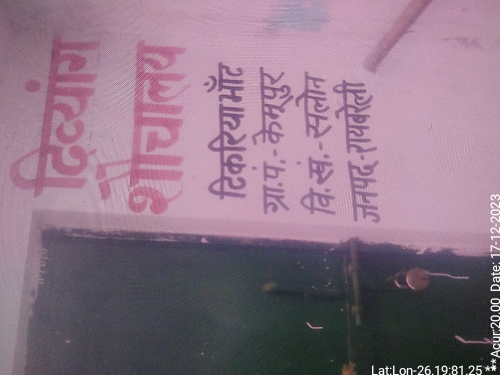 दिव्यांग
शौचालय
टिकरिया भॉट
ग्रा.पं.- केमूपुर
वि.खं.- सलोन
जनपद- रायबरेली
Lat:Lon-26.19:81.25
**Acur:20.00 Date: 17-12-2023